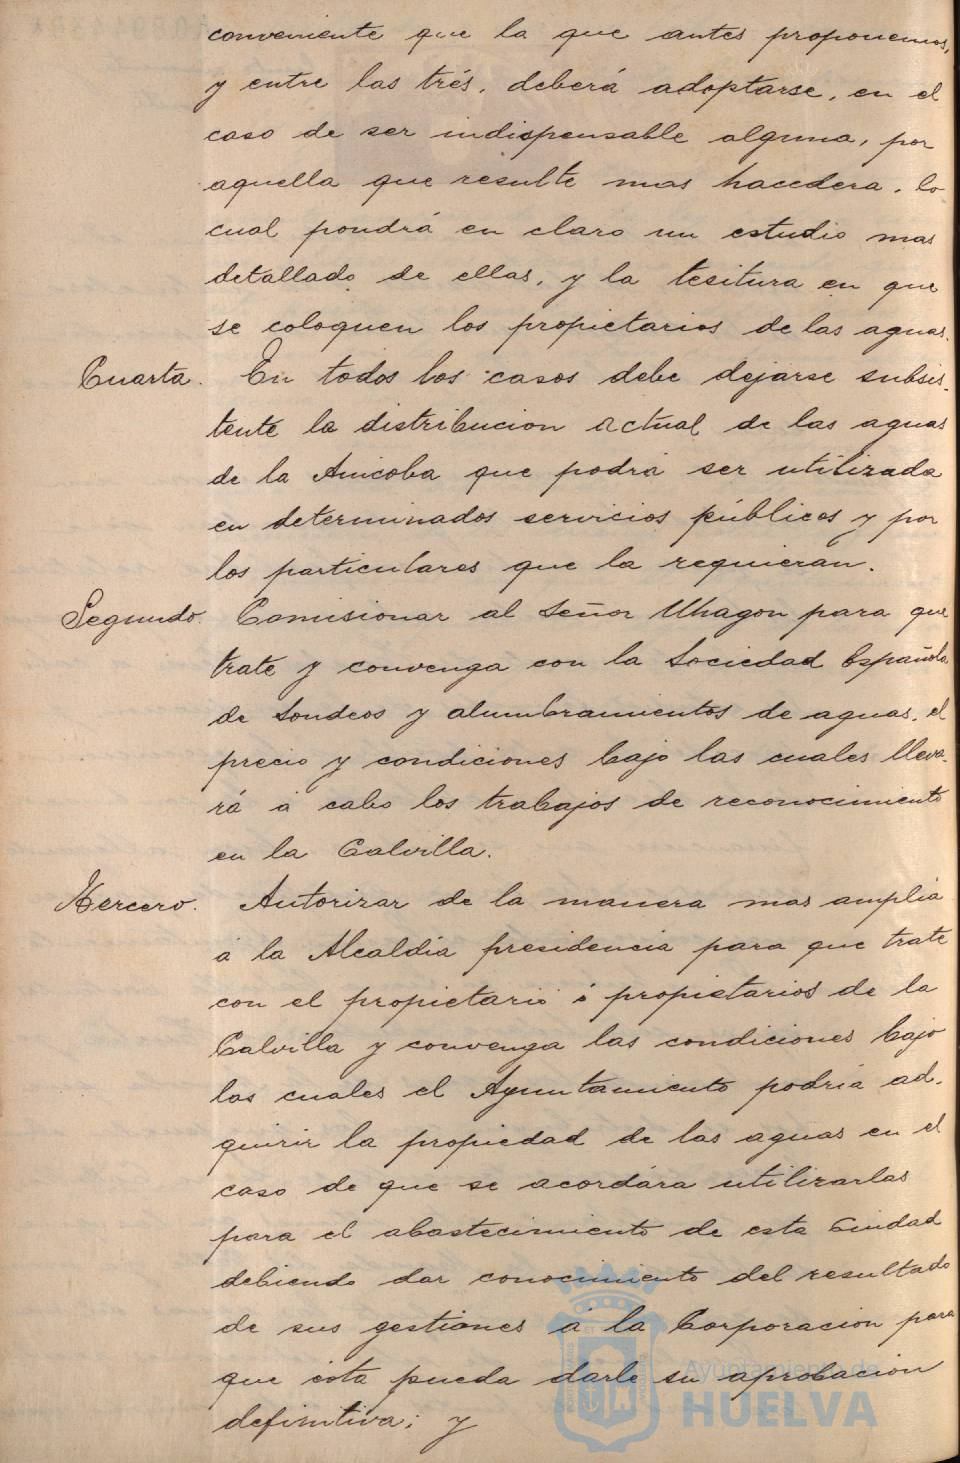 conveniente que la que antes proponemos,
y entre las trés, deberá adoptarse, en el
caso de ser indispensable alguna, por
aquella que resulte mas hacedera, lo
cual pondrá en claro un estudio mas
detallado de ellas, y la tesitura en que
se coloquen los propietarios de las aguas.
Cuarta. En todos los casos debe dejarse subsis-
tente la distribucion actual de las aguas
de la Anicoba que podrá ser utilizada
en determinados servicios públicos y por
los particulares que la requieran.
Segundo. Comisionar al Señor Uhagon para que
trate y convenga con la Sociedad Española
de Sondeos y alumbramientos de aguas, el
precio y condiciones bajo las cuales lleva-
rá á cabo los trabajos de reconocimiento
en la Calvilla.
Tercero. Autorizar de la manera mas amplia
á la Alcaldia presidencia para que trate
con el propietario ó propietarios de la
Calvilla y convenga las condiciones bajo
las cuales el Ayuntamiento podria ad-
quirir la propiedad de las aguas en el
caso de que se acordára utilizarlas
para el abastecimiento de esta Ciudad
debiendo dar conocimiento del resultado
de sus gestiones á la Corporacion para
que ésta pueda darle su aprobacion
definitiva; y
Ayuntamiento de
HUELVA